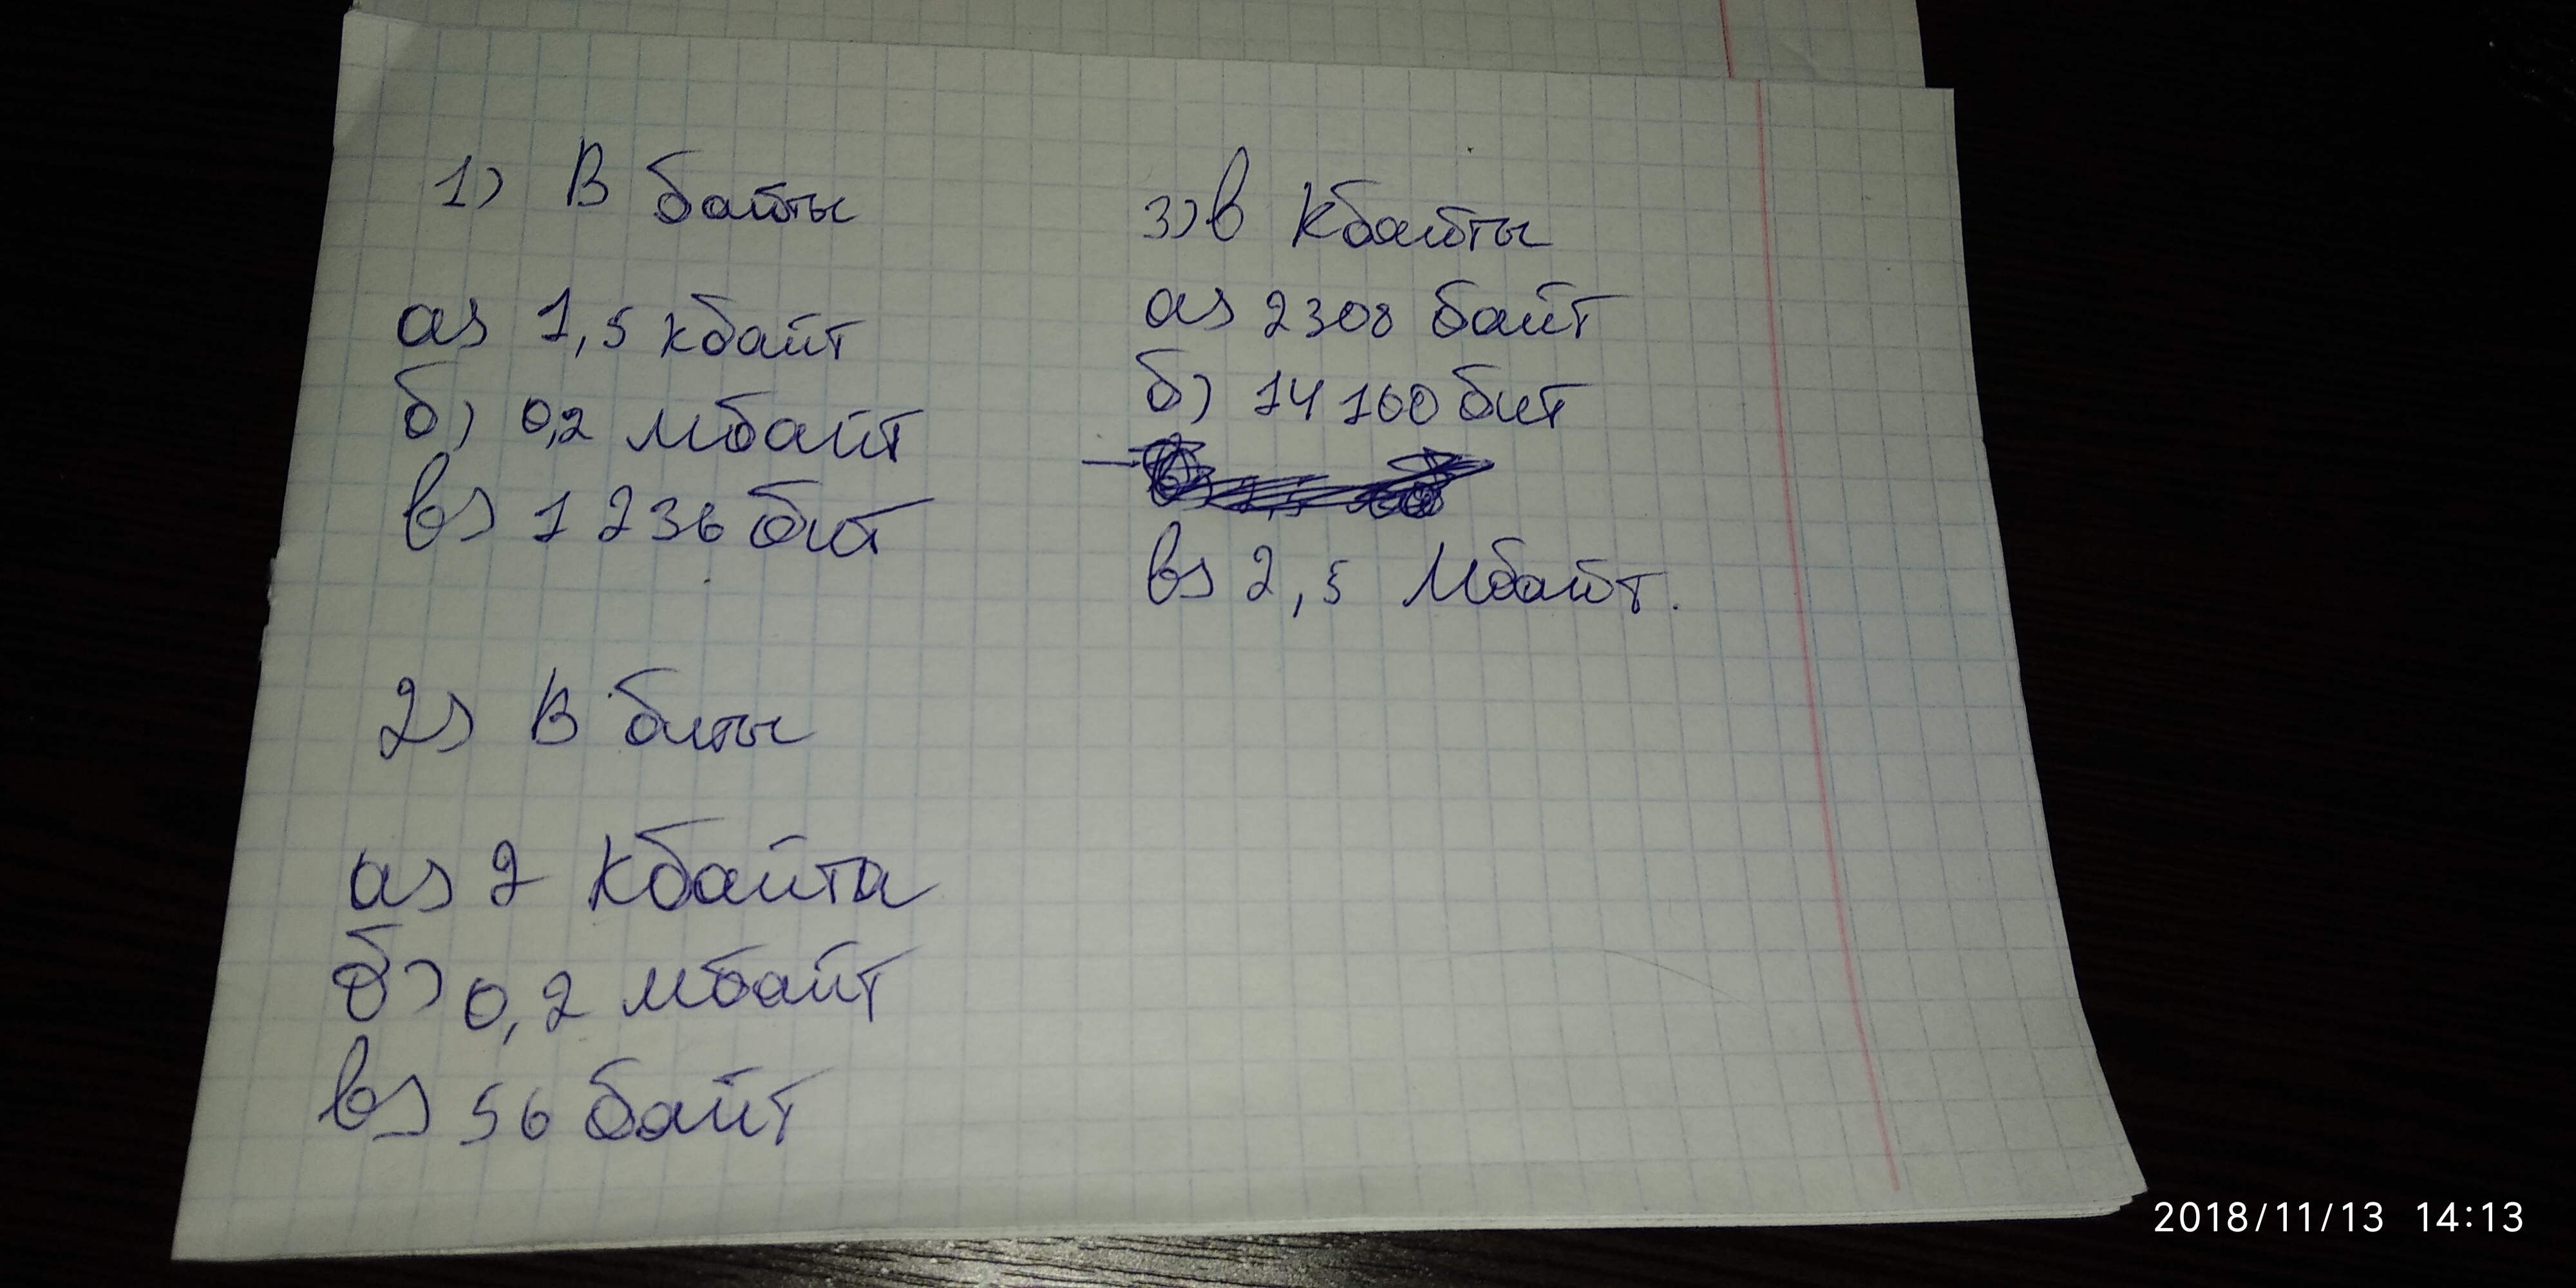 1) В байты
а) 1,5 кбайт
б) 0,2 мбайт
в) 1 236 бит
2) В биты
а) 2 Кбайта
б) 0,2 мбайт
в) 56 байт
3) в Кбайты
а) 2308 байт
б) 14 160 бит
в) 2,5 Мбайт.
2018/11/13 14:13